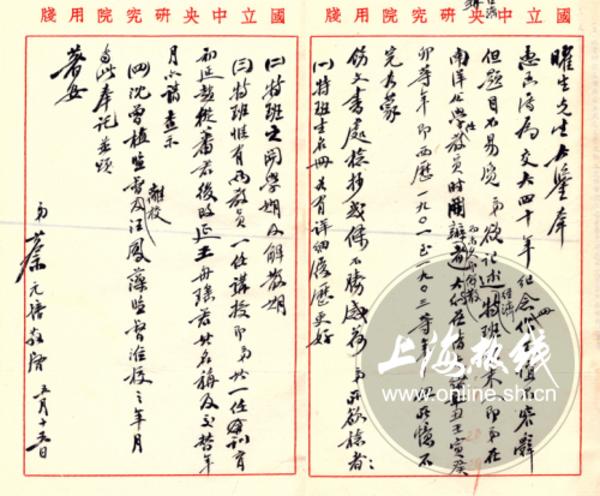 國立中央研究院用牋
國立中央研究院用牋
曜生先生大鑒奉
惠函
為交大四十年紀念
容辭
但題目不易覓弟欲記述特班
經濟
末即弟在
南洋公學任教員時開辦者大約在
辛丑壬寅癸
卯等年即西歷一九〇一至一九〇三等年
記憶不
完
蒙
飭文書處檢抄
不勝感荷弟所欲檢者:
(一)特班生名冊
有詳細履歷更好
(二)特班之開學期及解散期
(三)特班惟有兩教員一任講授即弟也一任
初延趙從蕃君後改延王舟瑤君其名稱及更替年
月亦請查示
(四)沈曾植監督離校及汪鳳藻監督
校之年月
專此奉託並頌
著安
弟蔡元培敬啓
五月十五日
上海热线
www.online.sh.cn